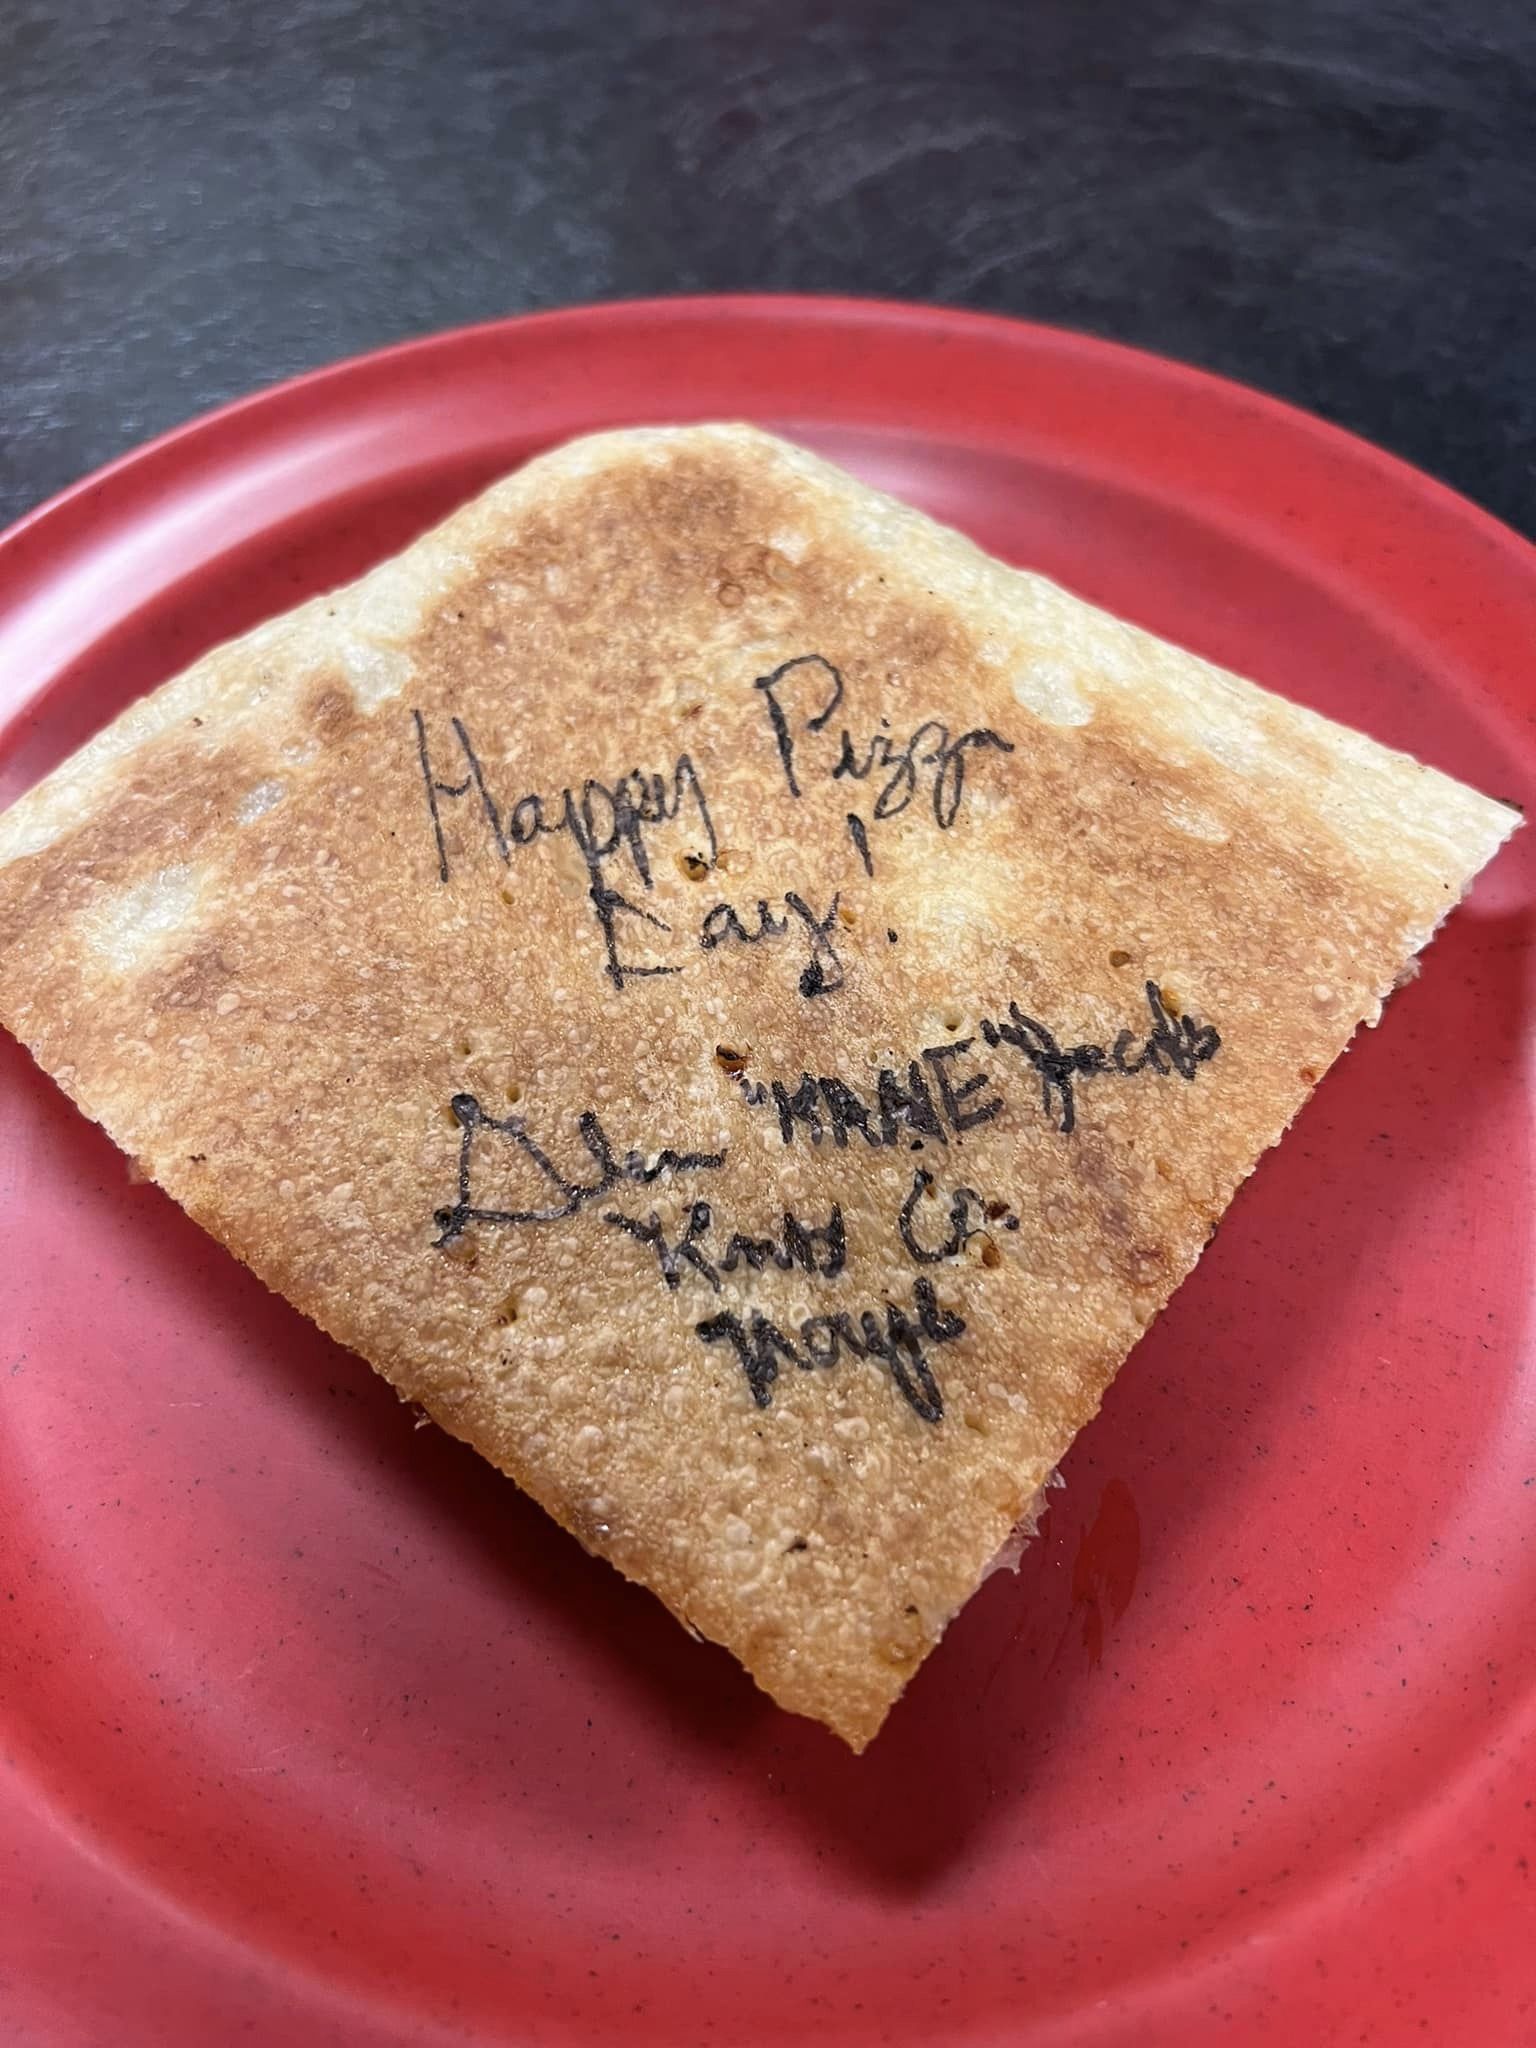 Happy Pizza
Day!
Glenn "KANE" Jacobs
Knox Co.
Mayor